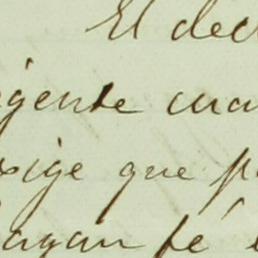 El dec
igente cua
xige que p
hagan fé e